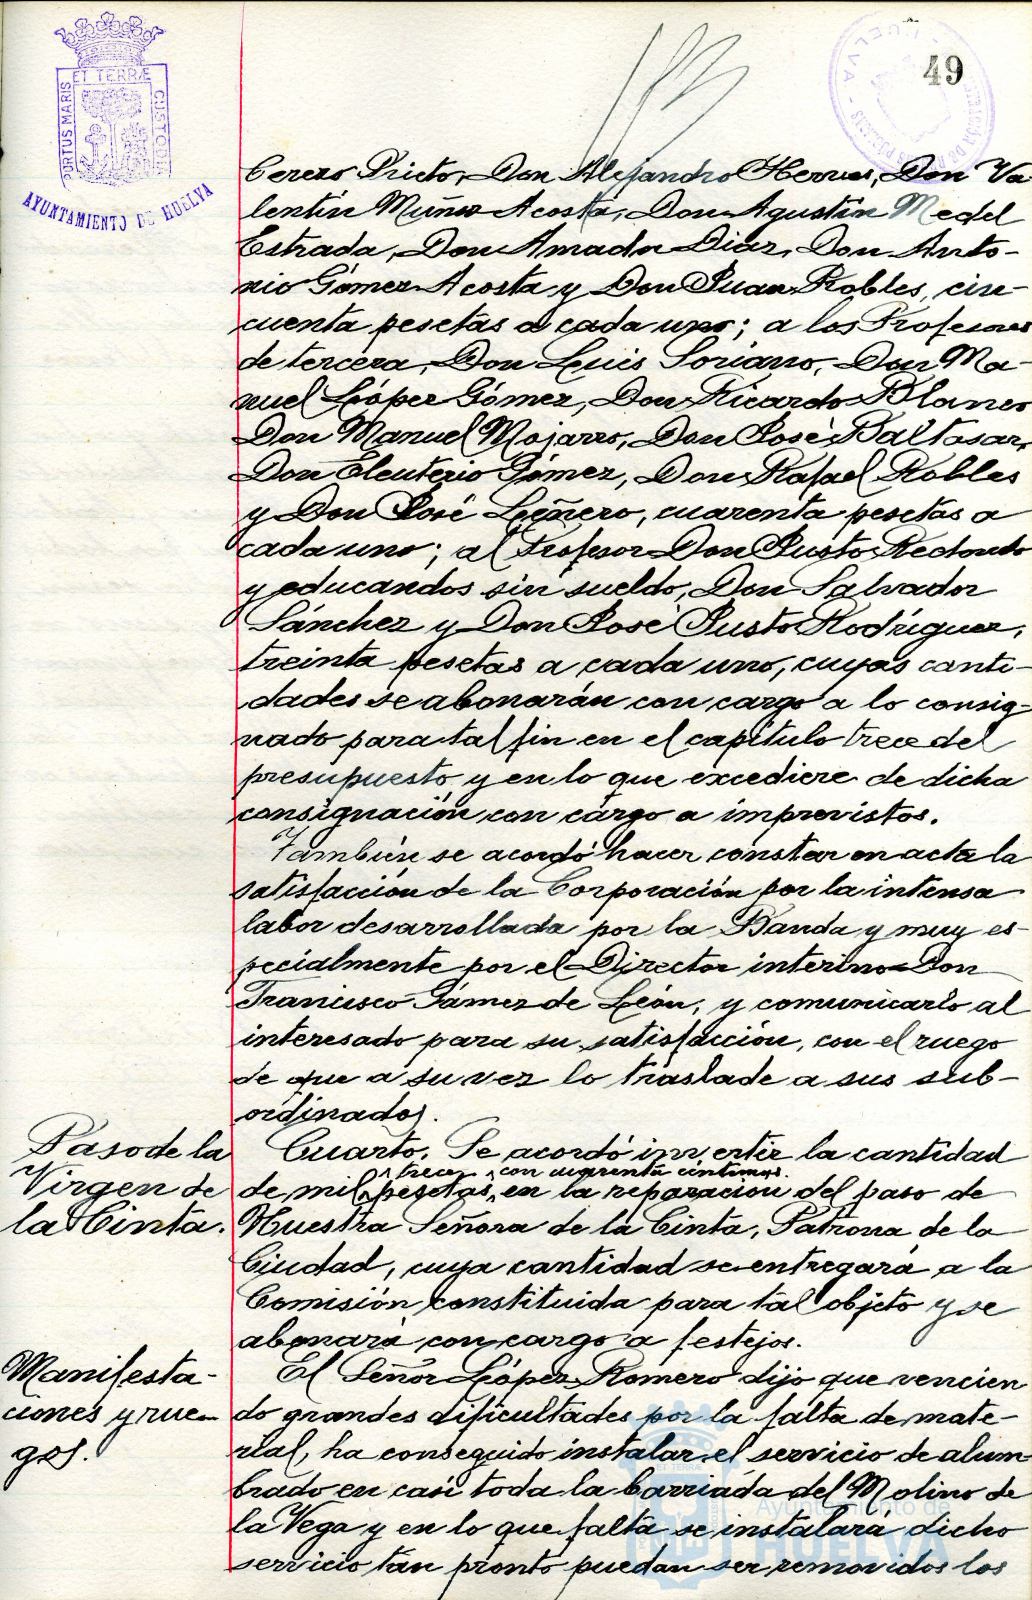 49
PORTUS MARIS ET TERRÆ CUSTODIA
AYUNTAMIENTO DE HUELVA
HUELVA
Cerezo Prieto, Don Alejandro Herves, Don Va-
lentín Muñoz Acosta, Don Agustín Medel
Estrada, Don Amador Diaz, Don Anto-
nio Gómez Acosta y Don Juan Robles, cin-
cuenta pesetas a cada uno; a los Profesores
de tercera, Don Luis Soriano, Don Ma-
nuel López Gómez, Don Ricardo Blanco
Don Manuel Mojarro, Don José Baltasar,
Don Eleuterio Gómez, Don Rafael Robles
y Don José Leñero, cuarenta pesetas a
cada uno; al Profesor Don Justo Redondo
y educandos sin sueldo, Don Salvador
Sánchez y Don José Justo Rodríguez,
treinta pesetas a cada uno, cuyas canti-
dades se abonarán con cargo a lo consig-
nado para tal fin en el capítulo trece del
presupuesto, y en lo que excediere de dicha
consignación con cargo a imprevistos.
También se acordó hacer constar en acta la
satisfacción de la Corporación por la intensa
labor desarrollada por la Banda y muy es-
pecialmente por el Director interino Don
Francisco Gámez de León, y comunicarlo al
interesado para su satisfacción, con el ruego
de que a su vez lo traslade a sus sub-
ordinados.
Paso de la
Virgen de
la Cinta.
Cuarto. Se acordó invertir la cantidad
trece con cuarenta céntimos.
de mil pesetas, en la reparación del paso de
Nuestra Señora de la Cinta, Patrona de la
Ciudad, cuya cantidad se entregará a la
Comisión constituida para tal objeto y se
abonará con cargo a festejos.
Manifesta-
ciones y rue-
gos.
El Señor López Romero dijo que vencien
do grandes dificultades por la falta de mate-
rial, ha conseguido instalar el servicio de alum
brado en casi toda la barriada del Molino de
la Vega y en lo que falta se instalará dicho
servicio tan pronto puedan ser removidos los
Ayuntamiento de
HUELVA